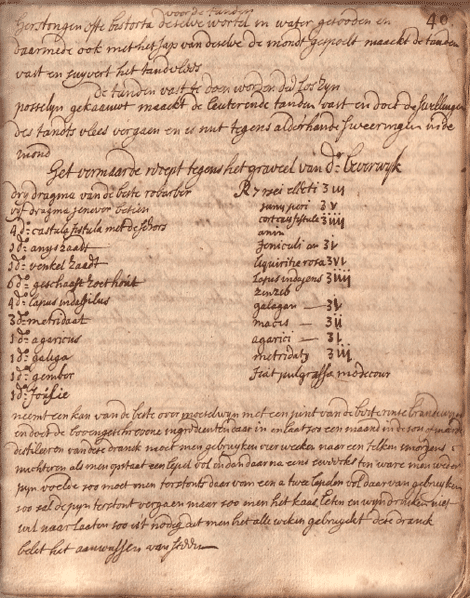 voor de tanden
40
herstongen ofte bistorta deselve wortel in water gesooden en
daarmede ook met het sap van deselve de mondt gespoelt maackt de tanden
vast en suyvert het tandvlees
de tanden vast te doen worden die los zyn
posselyn gekaauwt maackt de leuterende tanden vast en doet de swellingen
des tandts vlees vergaen en is nut tegens alderhande sweeringen in de
mond
Het vermaarde recept tegens het graveel van dr. beverwyk
dry dragma van de beste robarber
vyf dragma jenever besien
4 dr cassia fistula met de schors
1 dr anys zaadt
1 dr venkel zaadt
6 dr geschaaft zoet hout
4 dr lapus
3 dr metridaat
1 dr agaricus
1 dr galiga
1 dr gember
1 dr foelie
R rei electi ʒ iij
juniperi ʒ v
fistule ʒ iiij
anisi
feniculi an ʒ i
liquiritie rosa ʒ vi
lapus ʒ iiij
zinzeb
galagan — ʒ i
macis — ʒ ij
agarici — ʒ i
metridaty ʒ iij
Fiat pulv grossa modo
neemt een kan van de beste moeselwyn met een pint van de brandewyn
en doet de bovengeschreve ingredienten daar in en laet soo een maand in de son
van dese dranck moet men gebruyken vier weeken naar een telken smorgens
nuchteren als men opstaet een lepel vol en dan daar na eens ten ware men weder
pyn voelde soo moet men terstondt daar van een a twee lepelen vol daar van gebruyken
soo sal de pyn terstont vergaen maar soo men het kaas eten en wyn drinken niet
wil naar laaten soo ist nodig dat men het alle weken gebruyckt dese dranck
belet het aanwassen van